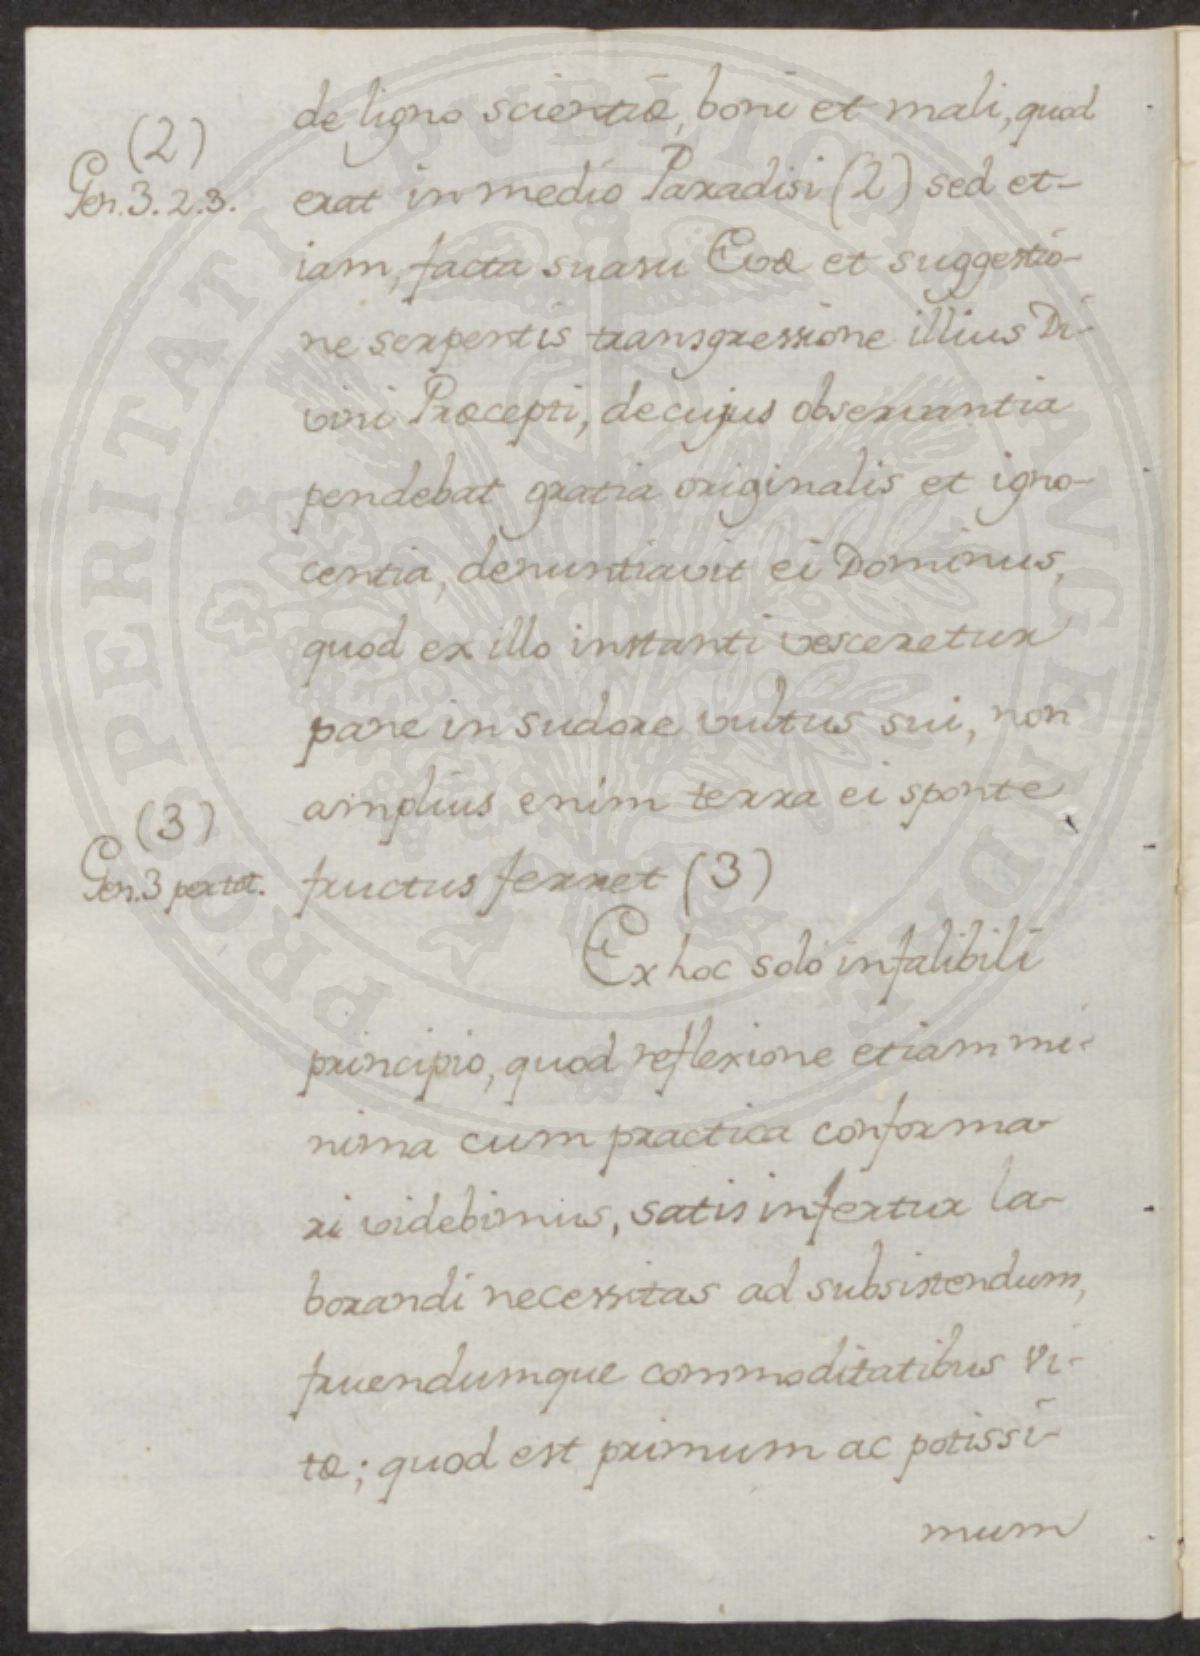 de ligno scientiæ, boni et mali, quod
(2)
Gen. 3. 2. 3.
erat in medio Paradisi (2) sed et-
iam, facta suasu Evæ et suggestio-
ne serpentis transgressione illius Di-
vini Præcepti, de cujus observantia
pendebat gratia originalis et igno-
centia, denuntiavit ei Dominus,
quod ex illo instanti vesceretur
pane in sudore vultus sui, non
amplius enim terra ei sponte
(3)
Gen. 3 per tot.
fructus ferret (3)
Ex hoc solo infalibili
principio, quod reflexione etiam mi-
nima cum practica conforma-
ri videbimus, satis infertur la-
borandi necessitas ad subsistendum,
fruendumque commoditatibus vi-
tæ; quod est primum ac potissi-
mum
PROSPERITATI PUBLICAE AUGENDAE